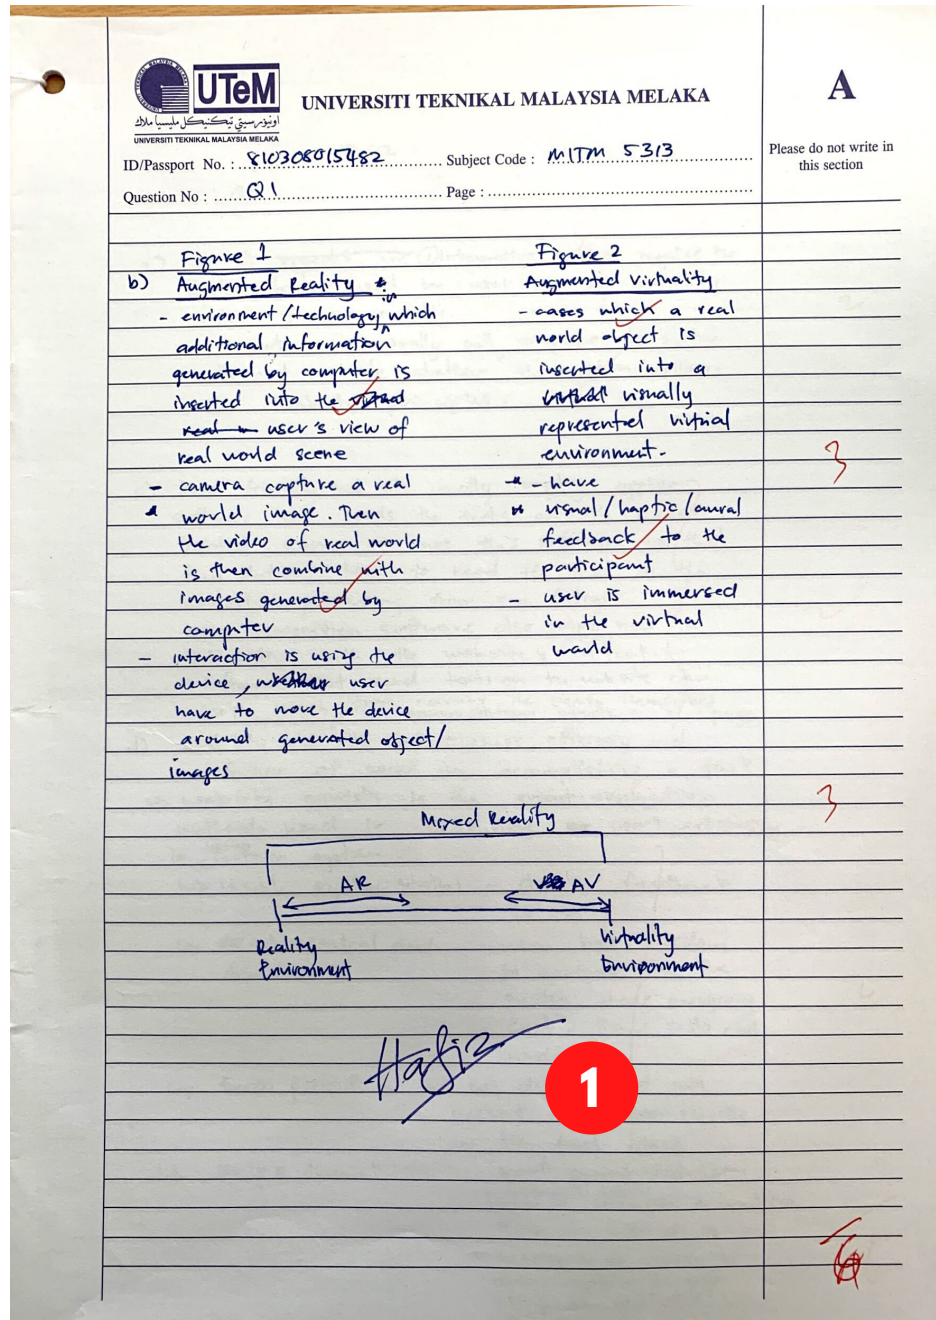 UTeM
اونيۏرسيتي تيكنيكل مليسيا ملاك
UNIVERSITI TEKNIKAL MALAYSIA MELAKA
UNIVERSITI TEKNIKAL MALAYSIA MELAKA
A
ID/Passport No. : 810308015482 Subject Code : MITM 5313
Please do not write in
this section
Question No : Q1 Page :
Figure 1
b) Augmented Reality
- environment/technology in which
additional information
generated by computer is
inserted into the
user's view of
real world scene
- camera capture a real
world image. Then
the video of real world
is then combine with
images generated by
computer
- interaction is using the
device, user
have to move the device
around generated object/
images
Figure 2
Augmented virtuality
- cases which a real
world object is
inserted into a
visually
represented virtual
environment.
- have
visual/haptic/aural
feedback to the
participant
- user is immersed
in the virtual
world
3
3
Mixed Reality
AR AV
Reality
Environment
Virtuality
Environment
Hafiz
1
6